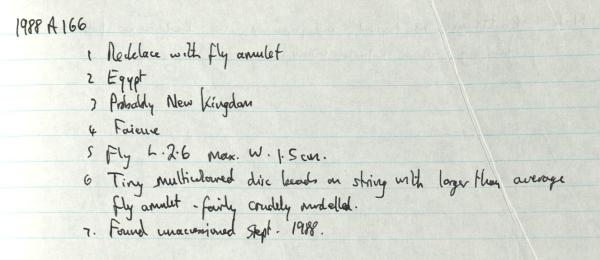 1988 A 166
1 Necklace with fly amulet
2 Egypt
3 Probably New Kingdom
4 Faience
5 Fly L. 2.6 max. W. 1.5 cm.
6 Tiny multicoloured disc beads on string with larger than average
fly amulet - fairly crudely modelled.
7. Found unaccessioned Sept. 1988.